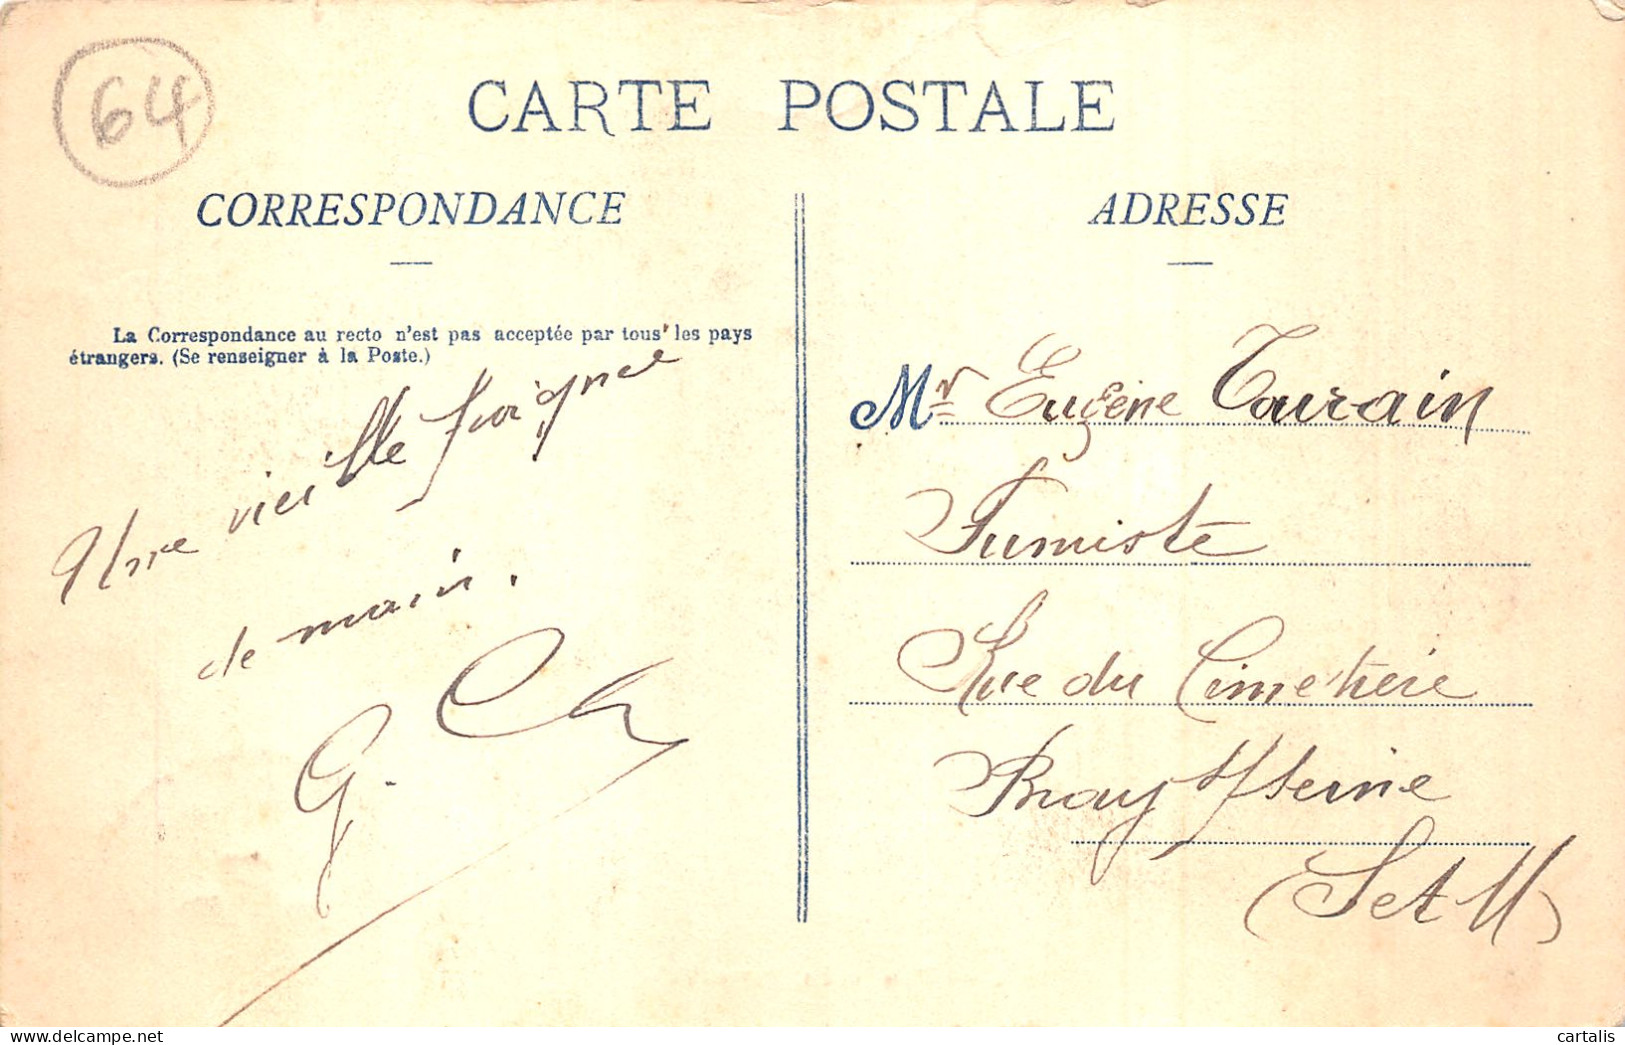 64
CARTE POSTALE
CORRESPONDANCE
La Correspondance au recto n'est pas acceptée par tous les pays
étrangers. (Se renseigner à la Poste.)
Une vieille poignée
de main.
G. Ch
ADRESSE
Mr Eugène Tourain
Fumiste
Rue du Cimetière
Bray s/Seine
(S et M)
cartalis
delcampe.net